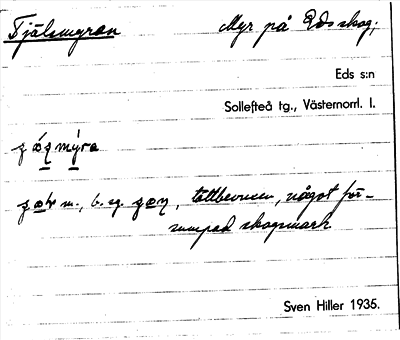 Tjälsmyran Myr på Eds skog;
Eds s:n
Sollefteå tg., Västernorrl. l.
m., b. sg. tättbevuxen, något för-
sumpad skogsmark
Sven Hiller 1935.